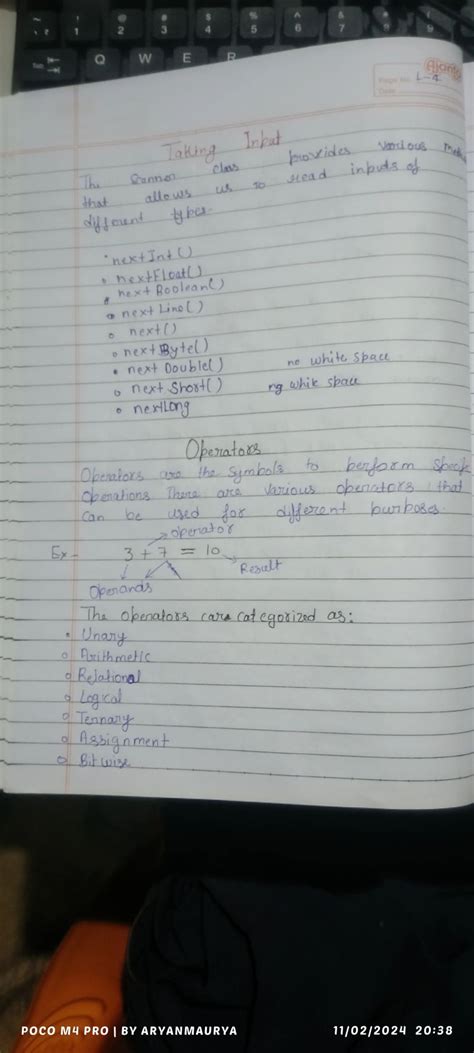 ~ ! @ # $ % ^ & *
1 2 3 4 5 6 7 8 9
Q W E R
Ajanta
Page No. L-2
Date
Taking Input
The Scanner class provides various
that allows us to read inputs of
different types.
• nextInt()
• nextFloat()
• nextBoolean()
• nextLine()
o next()
o nextByte()
• next Double() no white space
o next Short() ng white space
• nextLong
Operators
Operators are the symbols to perform
operations. There are various operators that
can be used for different purposes.
operator
Ex - 3 + 7 = 10
Result
Operands
The operators care categorized as:
• Unary
o Arithmetic
o Relational
o Logical
o Ternary
o Assignment
o Bitwise
POCO M4 PRO | BY ARYANMAURYA
11/02/2024 20:38